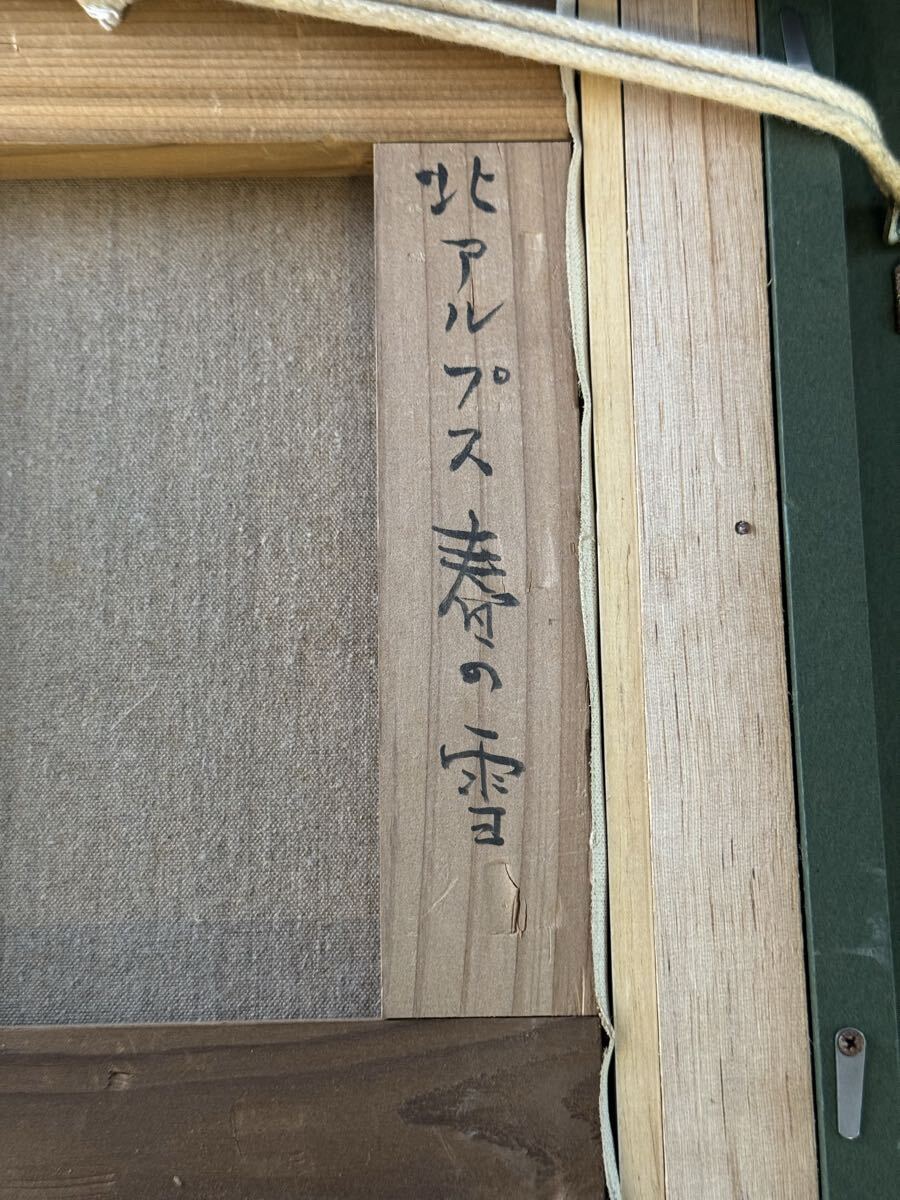 北アルプス 春の雪